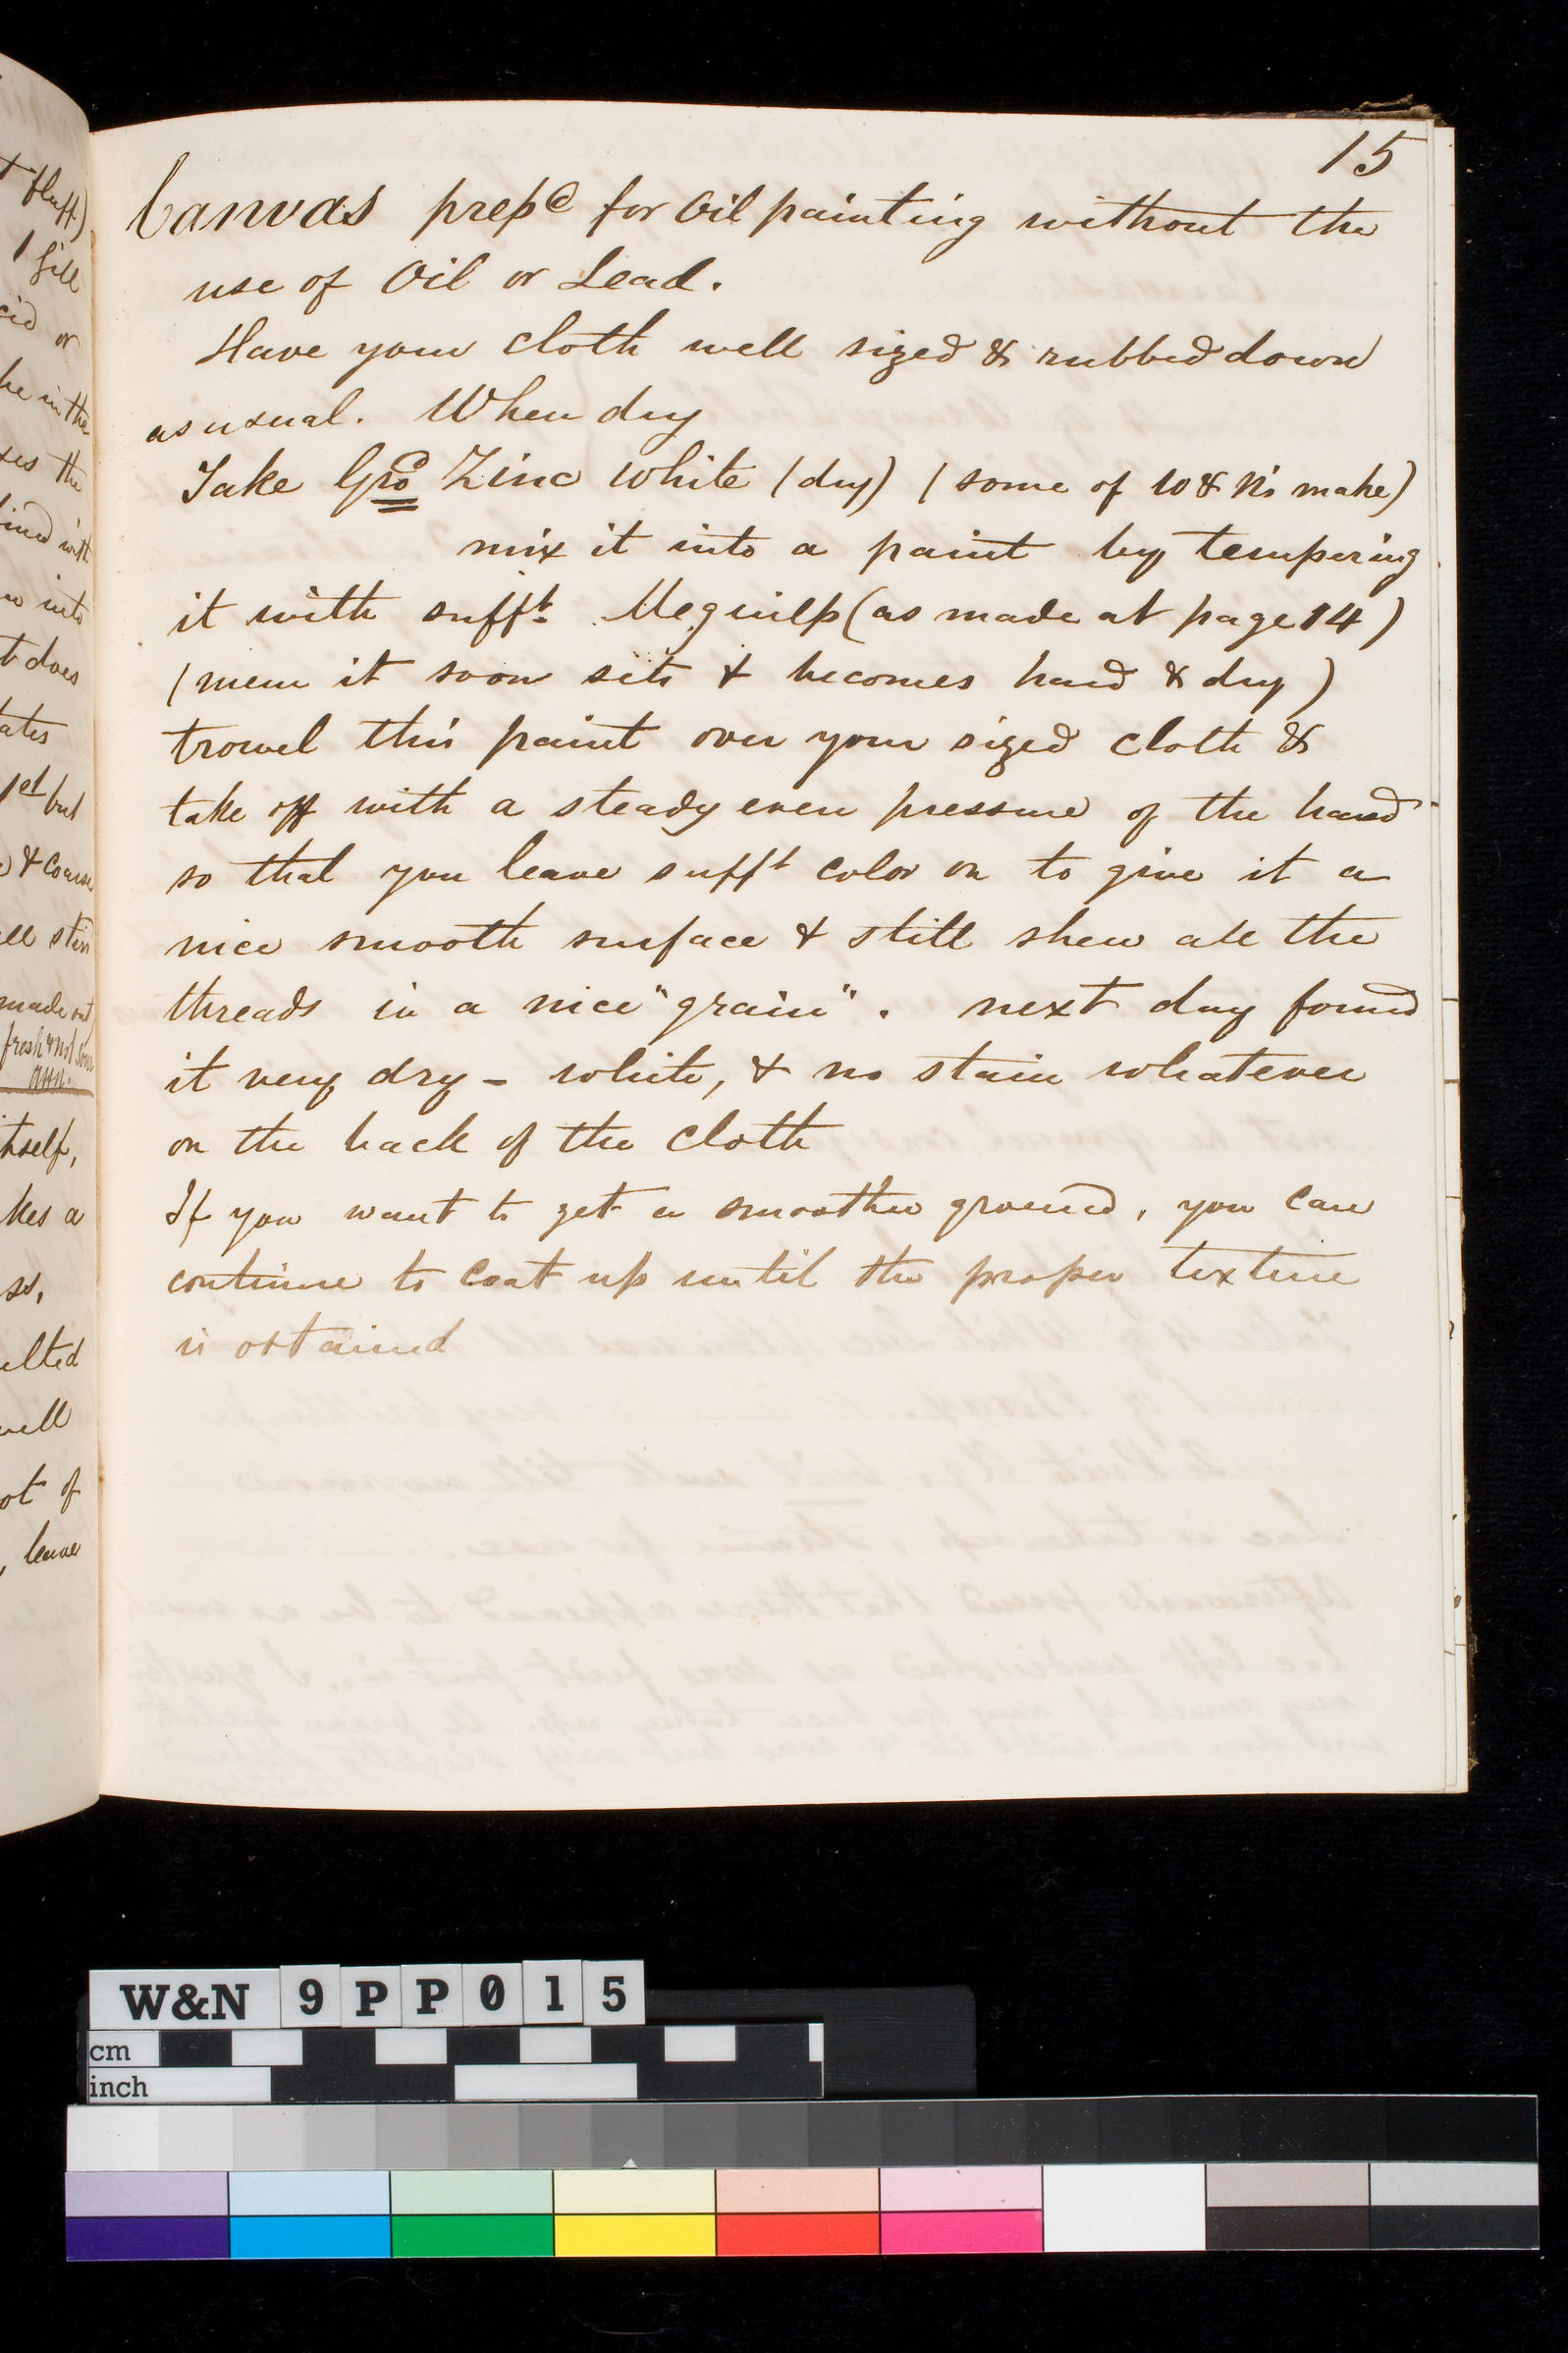 t fluff)
1 Gill
cid or
he in the
xes the
ined with
n into
t does
tates
yet but
) & coarse
ell stir
made out
fresh & not
itself,
kes a
so,
ulted
well
ot of
, leave
15
Canvas prepd for Oil painting without the
use of Oil or Lead.
Have your cloth well sized & rubbed down
as usual. When dry
Take Grod Zinc White (dry) (some of W & N's make)
mix it into a paint by tempering
it with sufft. Meguilp (as made at page 14)
(mem it soon sets & becomes hard & dry)
trowel this paint over your sized cloth &
take off with a steady even pressure of the hand
so that you leave sufft color on to give it a
nice smooth surface & still shew all the
threads in a nice "grain". next day found
it very dry - white, & no stain whatever
on the back of the cloth
If you want to get a smoother ground, you can
continue to coat up until the proper texture
is obtained
W&N 9PP015
cm
inch